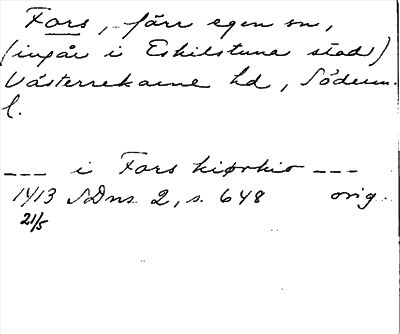 Fors, förr egen sn,
(ingår i Eskilstuna stad)
Västerrekarne hd, Söderm.
l.
--- i Fors kiørkio ---
1413 SDns 2, s. 648 orig.
21/5